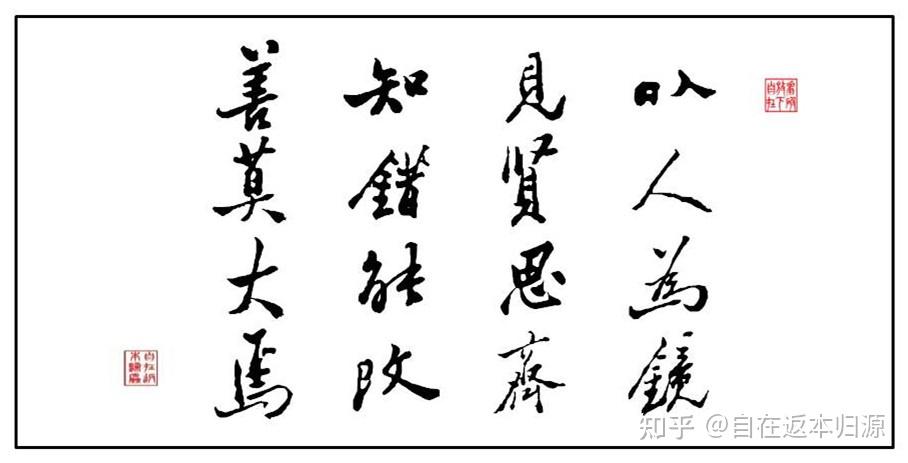 以人為鏡
見賢思齊
知錯能改
善莫大焉
知乎 @自在返本归源